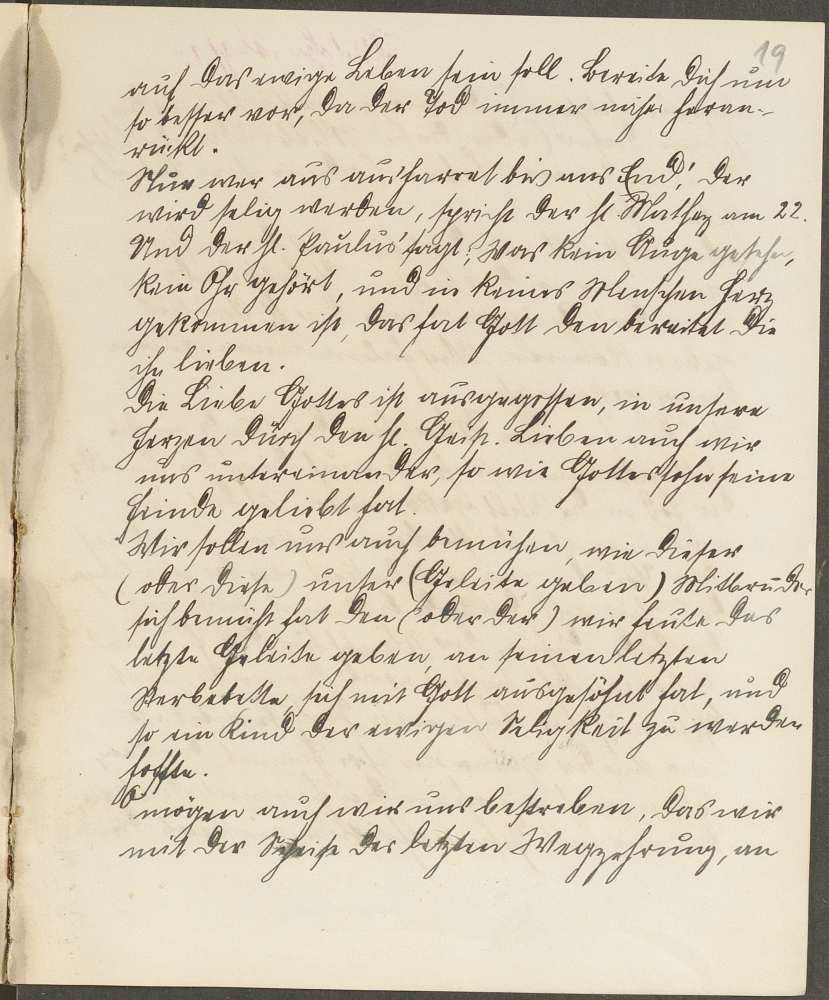 19
auf das ewige Leben sein soll. Bereite dich um
so besser vor, da der Tod immer näher heran-
rückt.
Nur wer aus ausharret bis ans End, der
wird selig werden, spricht der hl. Mathey am 22.
Und der hl. Paulus sagt: Was kein Auge gesehn,
kein Ohr gehört, und in keines Menschen Herz
gekommen ist, das hat Gott den bereitet die
ihn lieben.
Die Liebe Gottes ist ausgegossen, in unsere
Herzen durch den hl. Geist. Lieben auch wir
uns untereinander, so wie Gottessohn seine
Feinde geliebt hat.
Wir sollen uns auch bemühen, wie dieser
(oder diese) unser (Geleite geben) Mitbruder
sich bemüht hat den (oder der) wir heute das
letzte Geleite geben, an seinen letzten
Sterbebette, sich mit Gott ausgesöhnt hat, und
so ein Kind der ewigen Seligkeit zu werden
hoffte.
O mögen auch wir uns bestreben, das wir
mit der Speise der letzten Wegzehrung, an